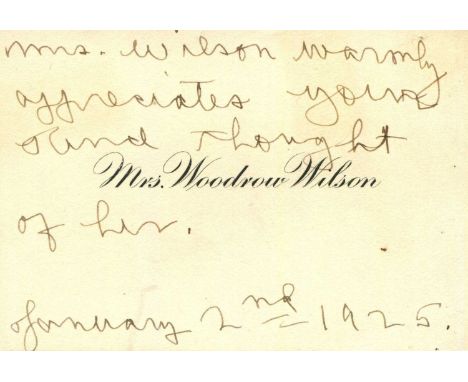 Mrs. Wilson warmly
appreciates your
kind thought
Mrs. Woodrow Wilson
of her.
January 2nd 1925.